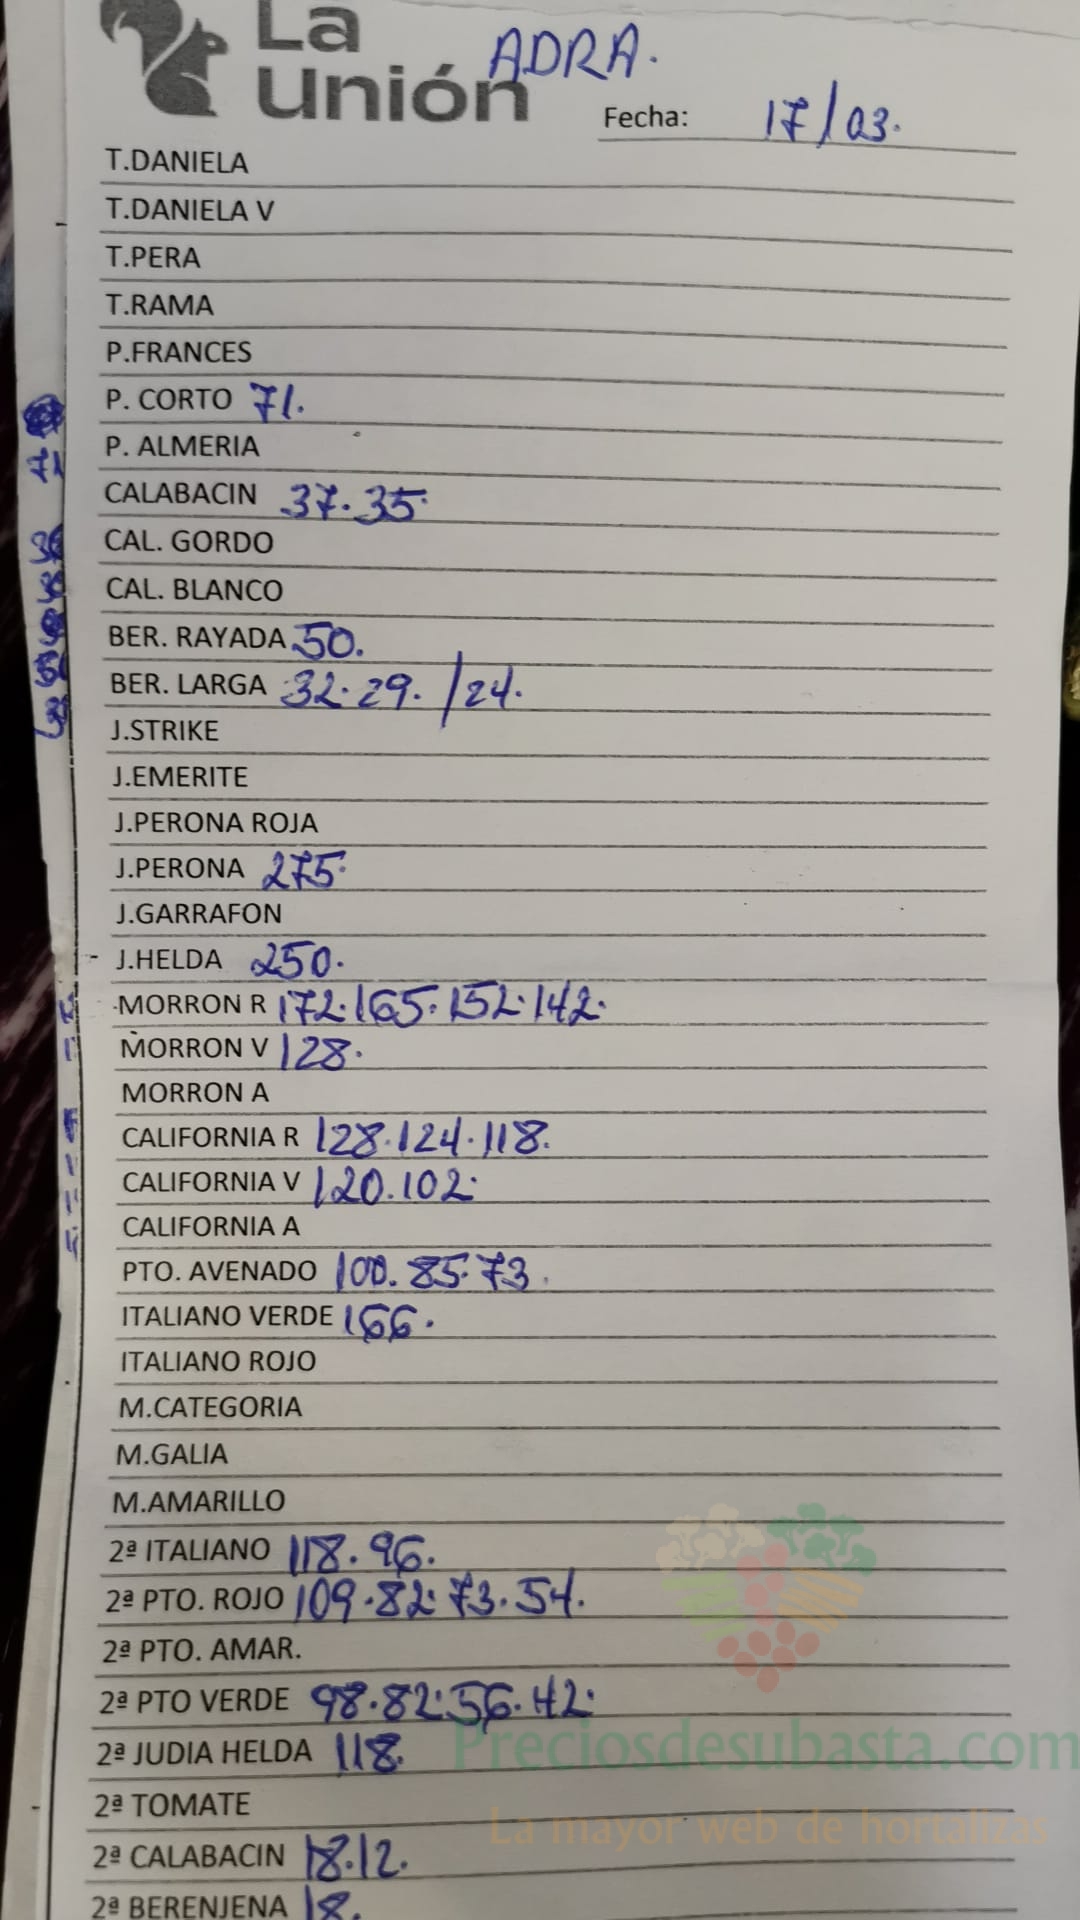 La
Unión ADRA.
Fecha: 17/03.
T.DANIELA
T.DANIELA V
T.PERA
T.RAMA
P.FRANCES
P. CORTO 71.
P. ALMERIA
CALABACIN 37.35.
CAL. GORDO
CAL. BLANCO
BER. RAYADA 50.
BER. LARGA 32.29. /24.
J.STRIKE
J.EMERITE
J.PERONA ROJA
J.PERONA 275.
J.GARRAFON
J.HELDA 250.
MORRON R 172.165.152.142.
MORRON V 128.
MORRON A
CALIFORNIA R 128.124.118.
CALIFORNIA V 120.102.
CALIFORNIA A
PTO. AVENADO 100.85.73.
ITALIANO VERDE 166.
ITALIANO ROJO
M.CATEGORIA
M.GALIA
M.AMARILLO
2ª ITALIANO 118.96.
2ª PTO. ROJO 109.82.73.54.
2ª PTO. AMAR.
2ª PTO VERDE 98.82.56.42.
2ª JUDIA HELDA 118.
Preciosdesubasta.com
2ª TOMATE
La mayor web de hortalizas
2ª CALABACIN 18.12.
2ª BERENJENA 18.